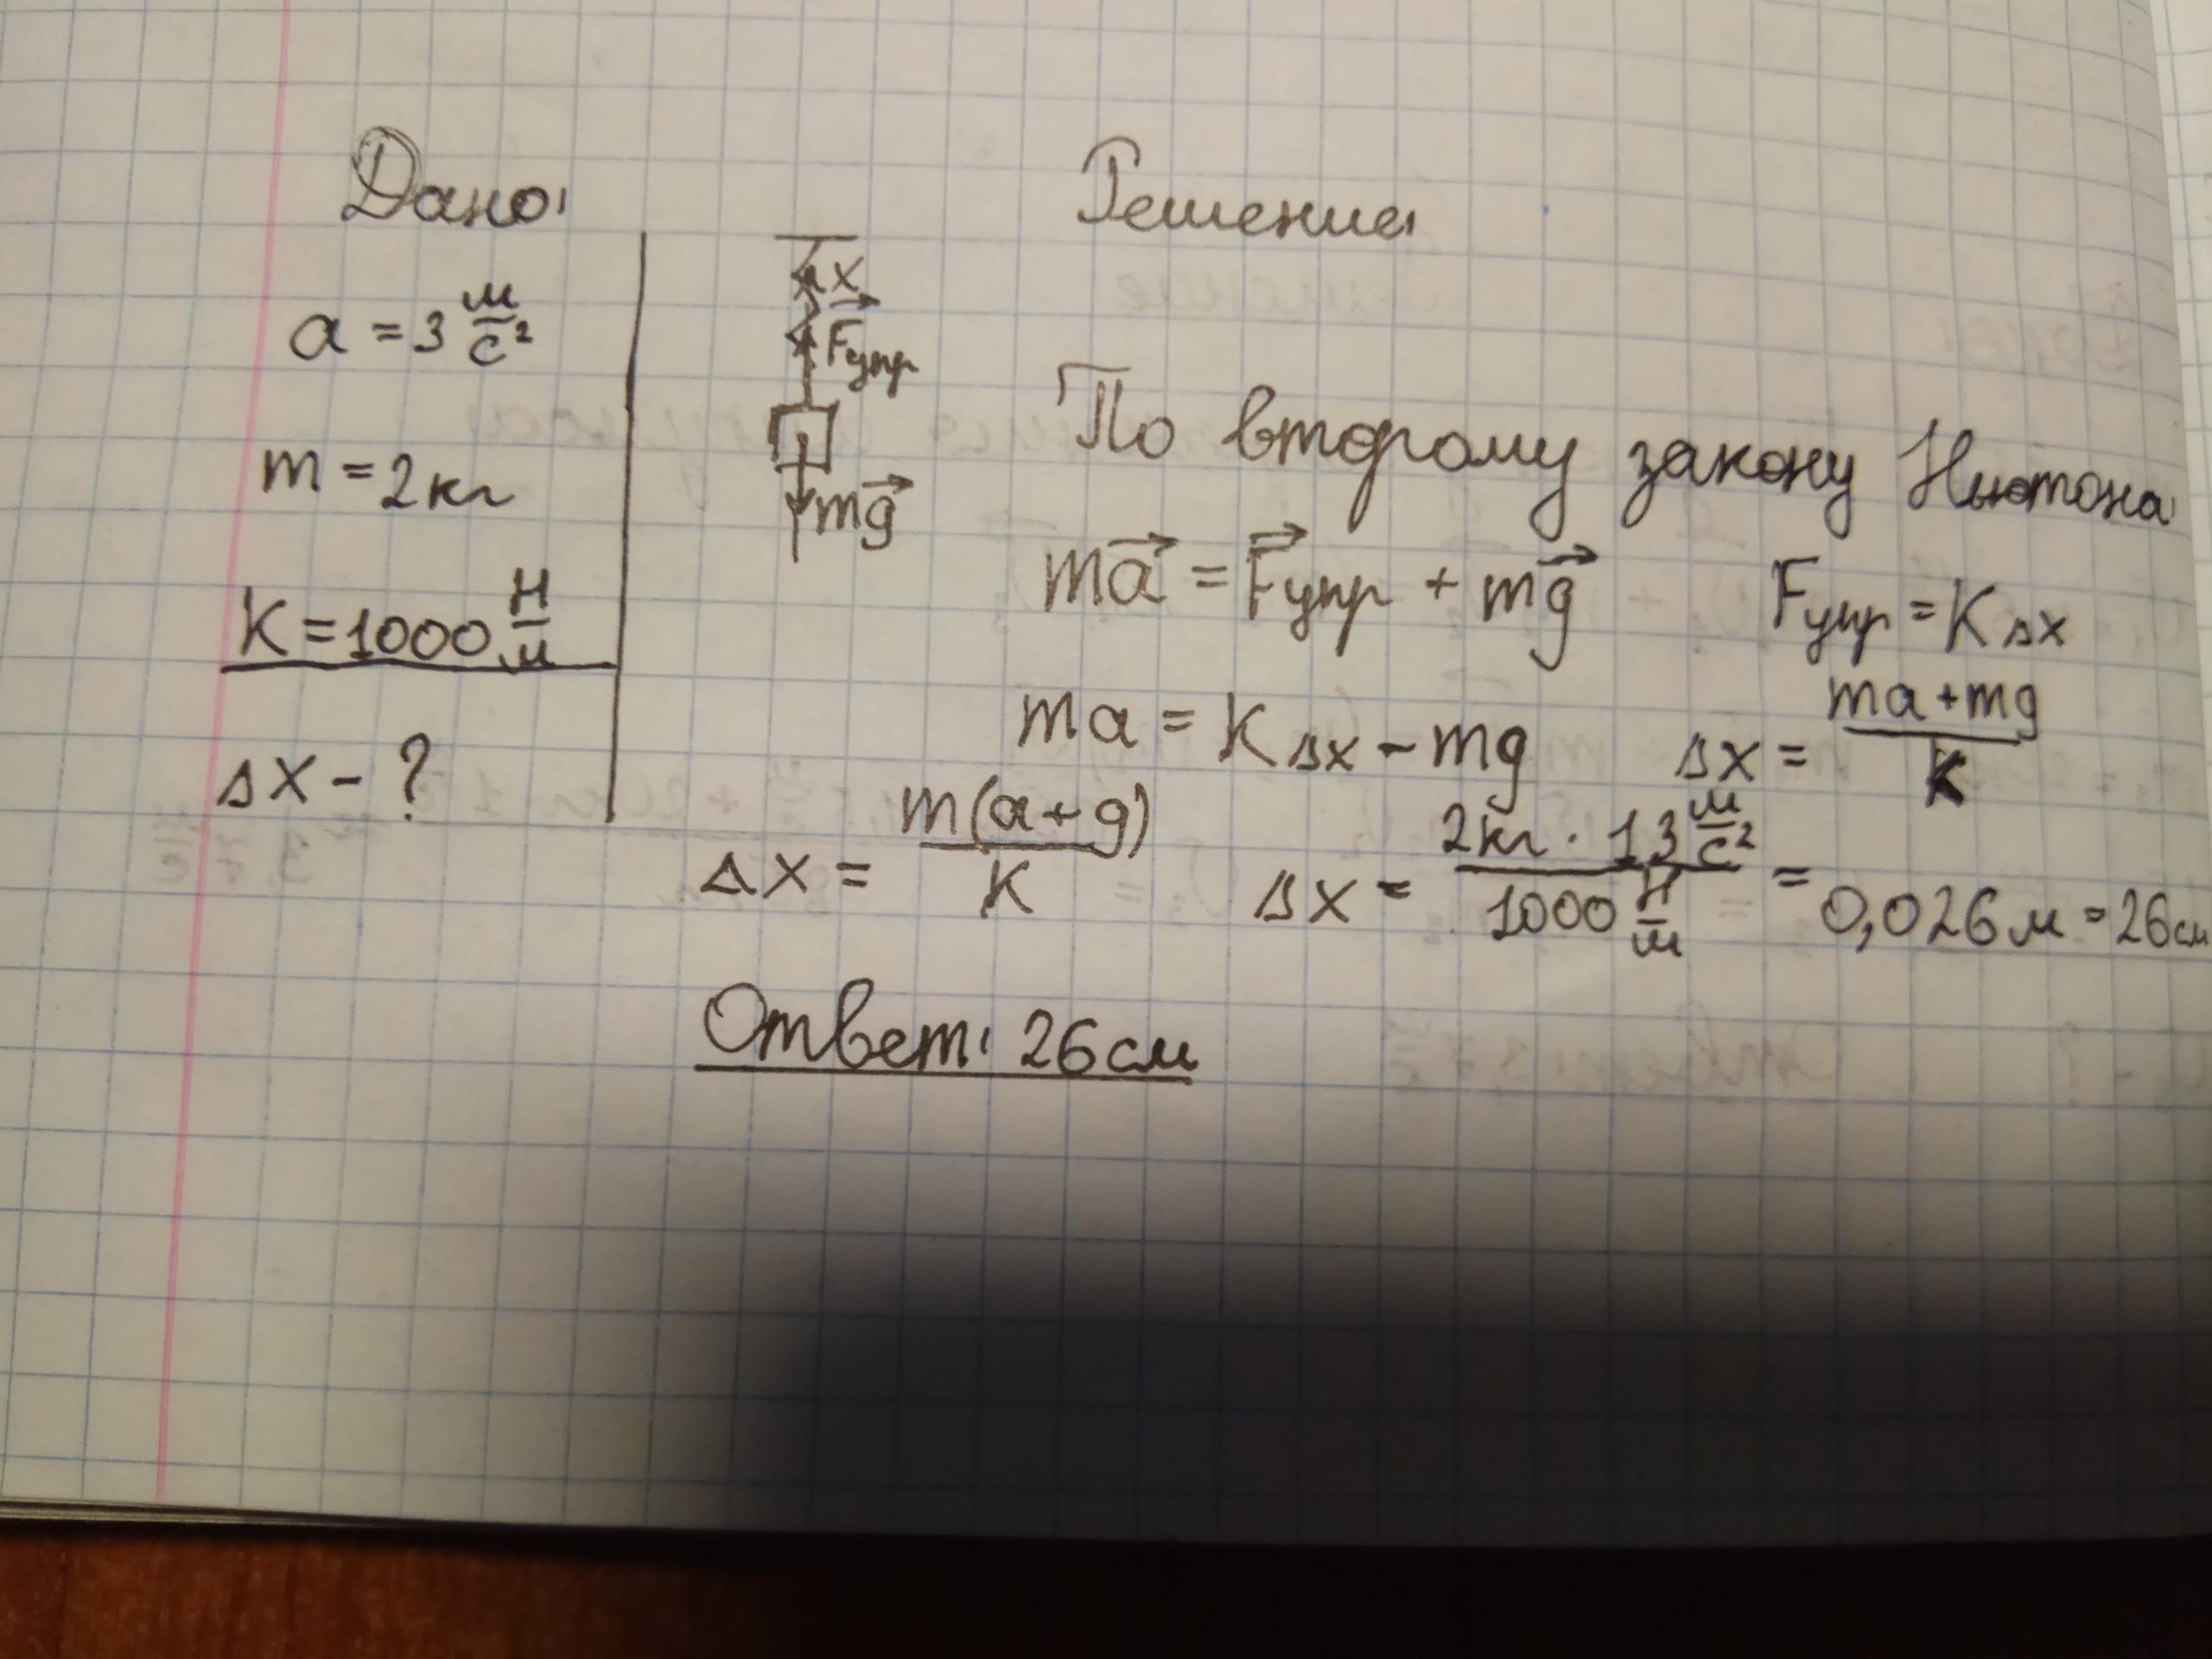 Дано: Решение:
a = 3 м/с²
m = 2 кг
K = 1000 Н/м
Δx - ?
x
Fупр
mg
По второму закону Ньютона
ma = Fупр + mg Fупр = KΔx
ma = KΔx - mg Δx = (ma + mg)/K
Δx = m(a + g)/K Δx = 2кг · 13 м/с² / 1000 Н/м = 0,026 м = 26 см
Ответ: 26 см